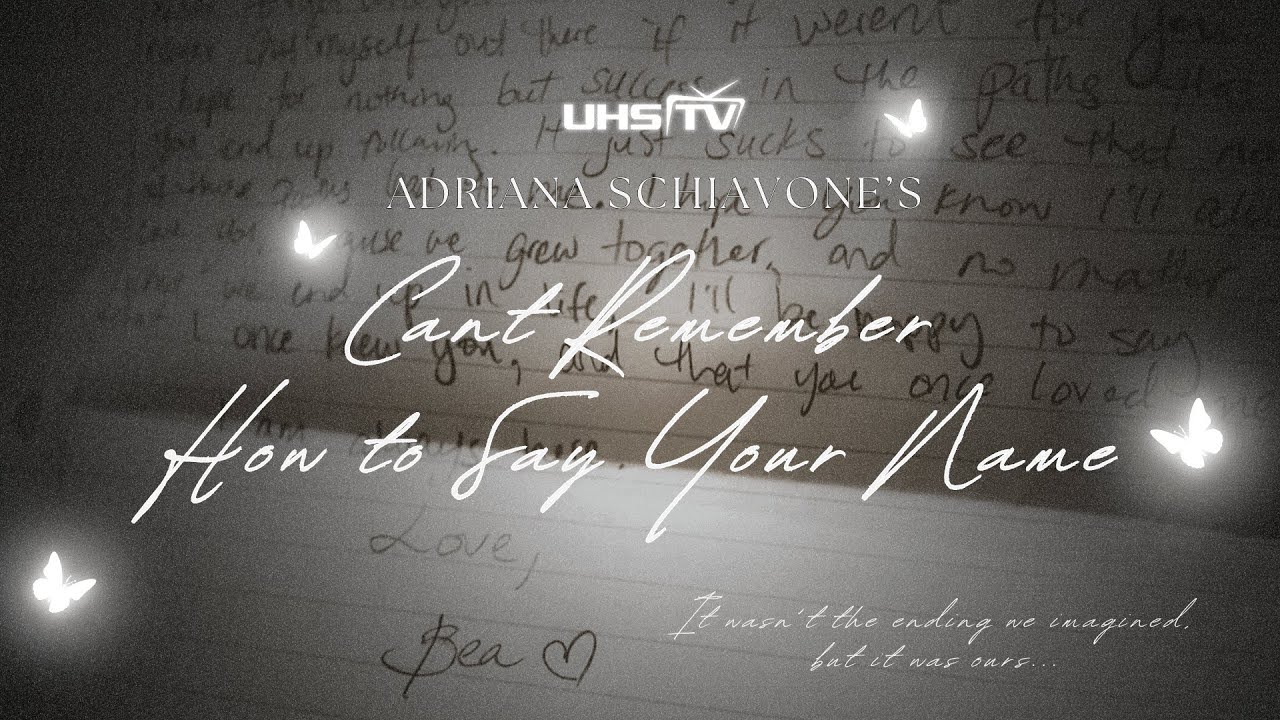 myself out there if it weren't for you
hope for nothing but success in the paths
you end up following. It just sucks to see that
UHS TV
ADRIANA SCHIAVONE'S
I hope you know I'll
we grew together, and no matter
we end up in life, I'll be happy to say
I once knew you, and that you once loved me
Cant Remember
How to Say Your Name
Love,
Bea
It wasn't the ending we imagined,
but it was ours...